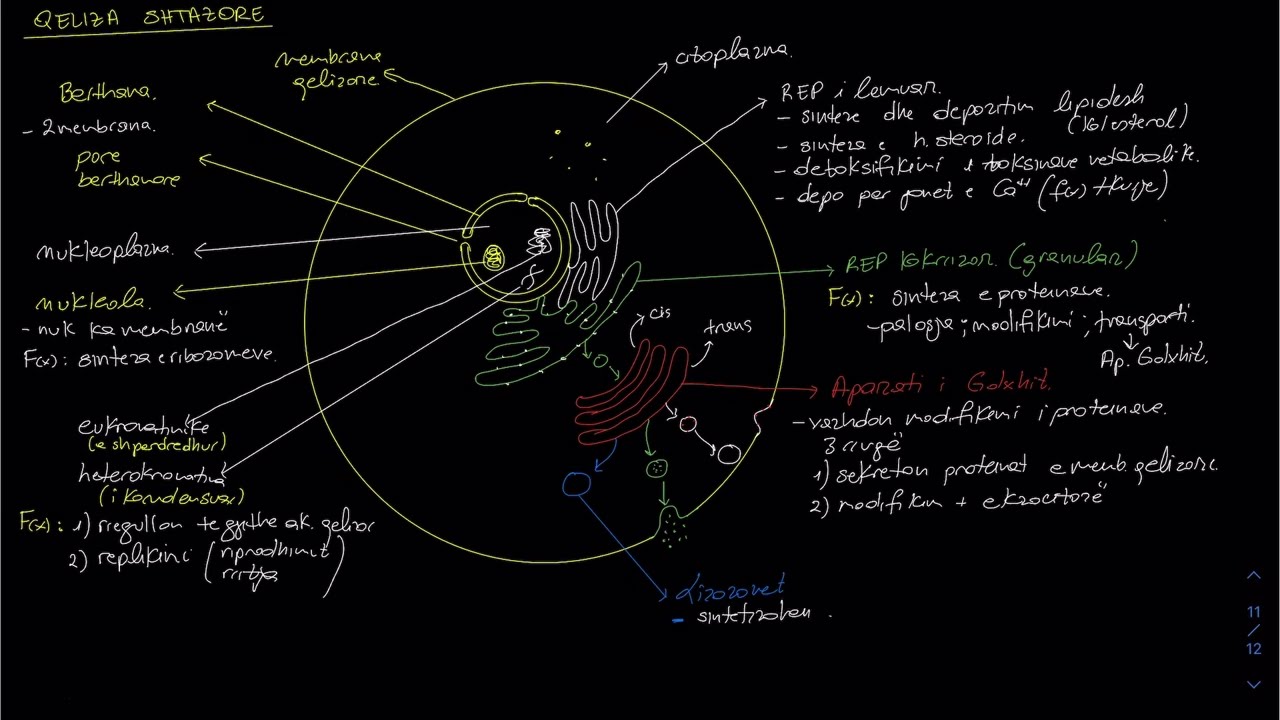 QELIZA SHTAZORE
membrana
qelizore
citoplazma.
Berthama.
- 2 membrana.
pore
berthamore
nukleoplazma.
nukleola.
- nuk ka membranë
F(x): sinteza e ribozomeve.
eukromatinike
(e shperdredhur)
heterokromatina
(i kondensuar)
F(x): 1) rregullon te gjitha ak. qelizor
2) replikimi (riprodhimit
rritja)
REP i lemuar.
- sinteze dhe depozitim lipidesh
(kolesterol)
- sinteza e h. steroide.
- detoksifikimi i toksineve metabolike.
- depo per jonet e Ca++ (f(x) tkurrje)
REP i kokrrizor. (granular)
F(x): sinteza e proteinave.
- palosja; modifikimi; transporti.
Ap. Golxhit.
cis
trans
Aparati i Golxhit.
- vazhdon modifikimi i proteinave.
3 rrugë
1) sekreton proteinat e memb. qelizore.
2) modifikim + ekzocitozë
Lizozomet
- sintetizohen .
11
/
12